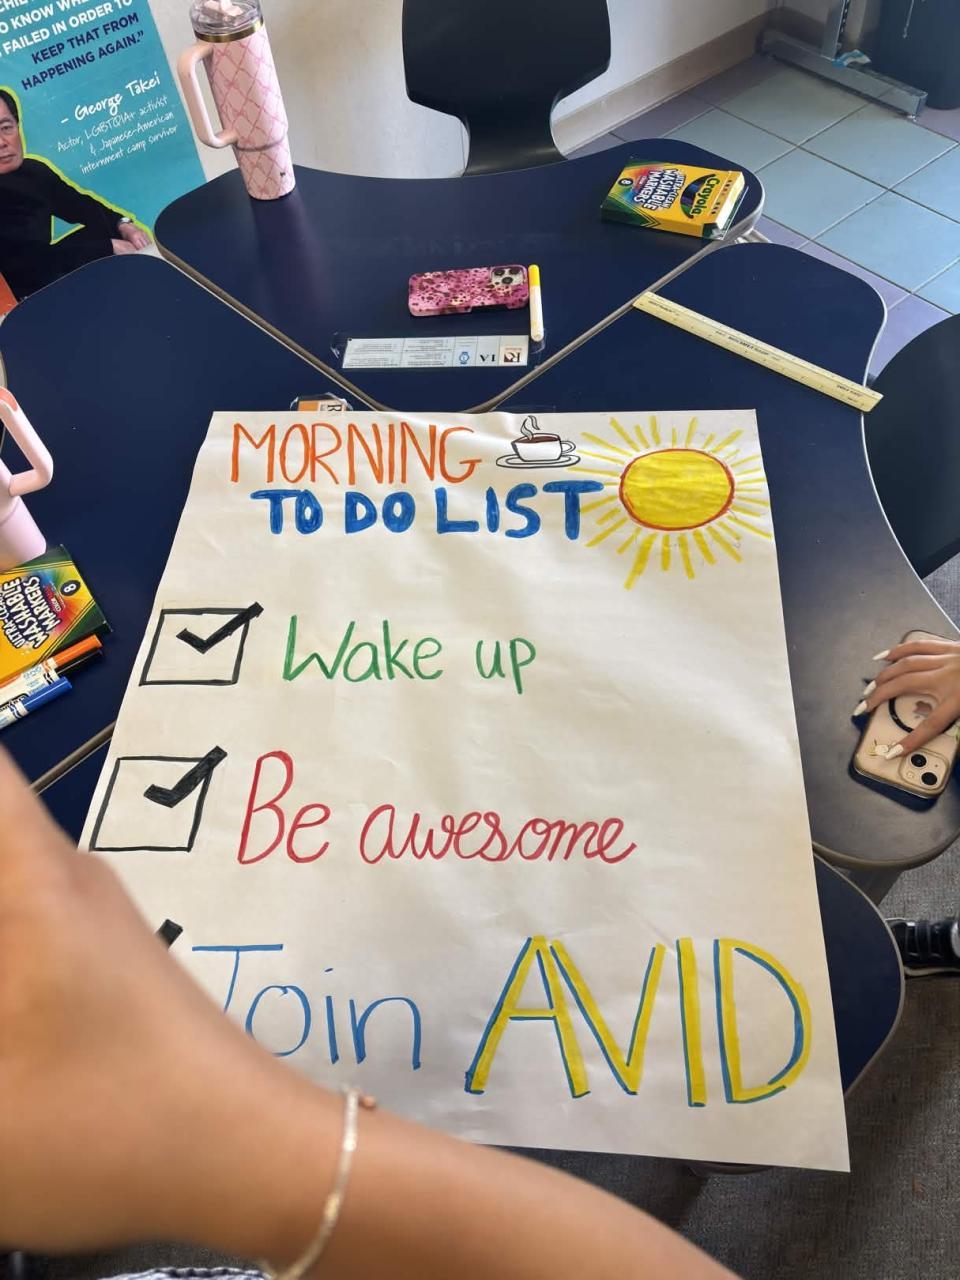 TO KNOW WHE
FAILED IN ORDER TO
KEEP THAT FROM
HAPPENING AGAIN."
- George Takei
Actor, LGBTQIA+ activist
& Japanese-American
internment camp survivor
Crayola
ULTRA-CLEAN
WASHABLE
MARKERS
8
1A
MORNING
TO DO LIST
Wake up
Be awesome
Join AVID
8
ULTRA-CLEAN
WASHABLE
MARKERS